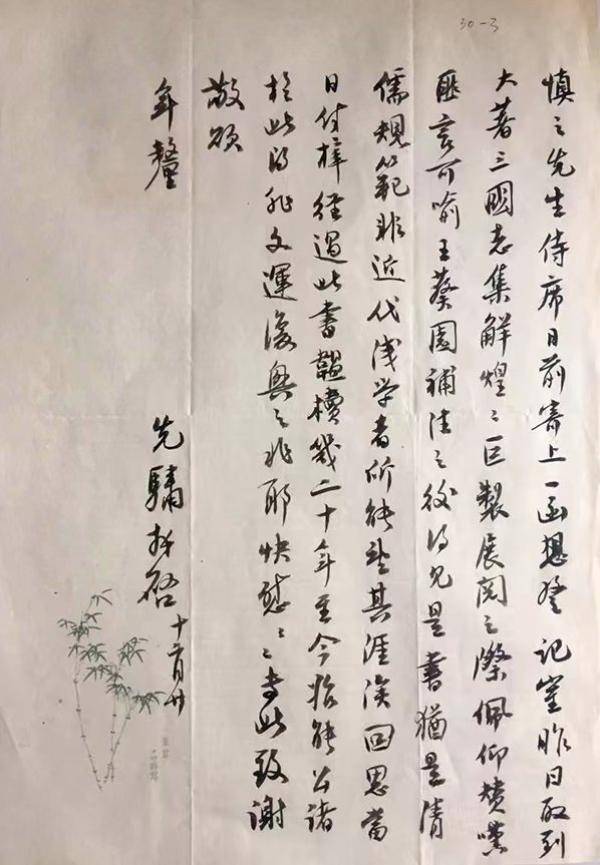 30-3
慎之先生侍席日前寄上一函想登記室昨日取到
大著三國志集解煌〻巨製展閱之際佩仰贊嘆
匪言可喻王葵園補注之後得見是書猶是清
儒規範非近代淺学者所能望其涯涘回思當
日付梓經過此書韞櫝幾二十年至今始能公諸
於此得非文運復興之兆耶快慰〻〻専此致謝
敬頌
年釐
先驌拜啓 十二月廿